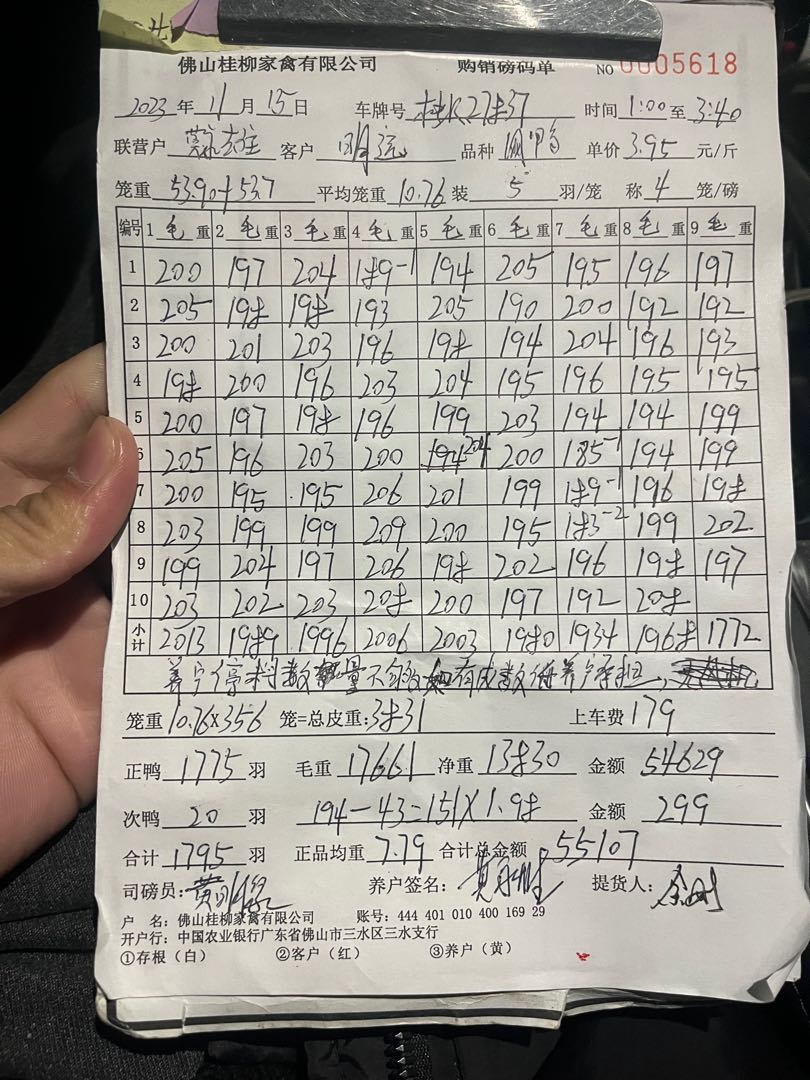 佛山桂柳家禽有限公司 购销磅码单 NO 0005618
2023 年 11 月 15 日 车牌号 27837 时间 1:00 至 3:40
联营户 客户 明流 品种 单价 3.95 元/斤
笼重 53.90+53.7 平均笼重 10.76 装 5 羽/笼 称 4 笼/磅
编号 1 毛 重 2 毛 重 3 毛 重 4 毛 重 5 毛 重 6 毛 重 7 毛 重 8 毛 重 9 毛 重
1 200 197 204 189-1 194 205 195 196 197
2 205 198 198 193 205 190 200 192 192
3 200 201 203 196 198 194 204 196 193
4 198 200 196 203 204 195 196 195 195
5 200 197 198 196 199 203 194 194 199
6 205 196 203 200 194 204 200 185-1 194 199
7 200 195 195 206 201 199 189-1 196 198
8 203 199 199 209 200 195 183-2 199 202
9 199 204 197 206 198 202 196 198 197
10 203 202 203 208 200 197 192 208
小计 2013 1989 1996 2006 2003 1980 1934 1968 1772
养户停料数量不够 有成数 养户承担,
笼重 10.76×356 笼=总皮重: 3831 上车费 179
正鸭 1775 羽 毛重 17661 净重 13830 金额 54629
次鸭 20 羽 194-43=151×1.98 金额 299
合计 1795 羽 正品均重 7.79 合计总金额 55107
司磅员: 养户签名: 提货人:
户 名: 佛山桂柳家禽有限公司 账号: 444 401 010 400 169 29
开户行: 中国农业银行广东省佛山市三水区三水支行
①存根(白) ②客户(红) ③养户(黄)